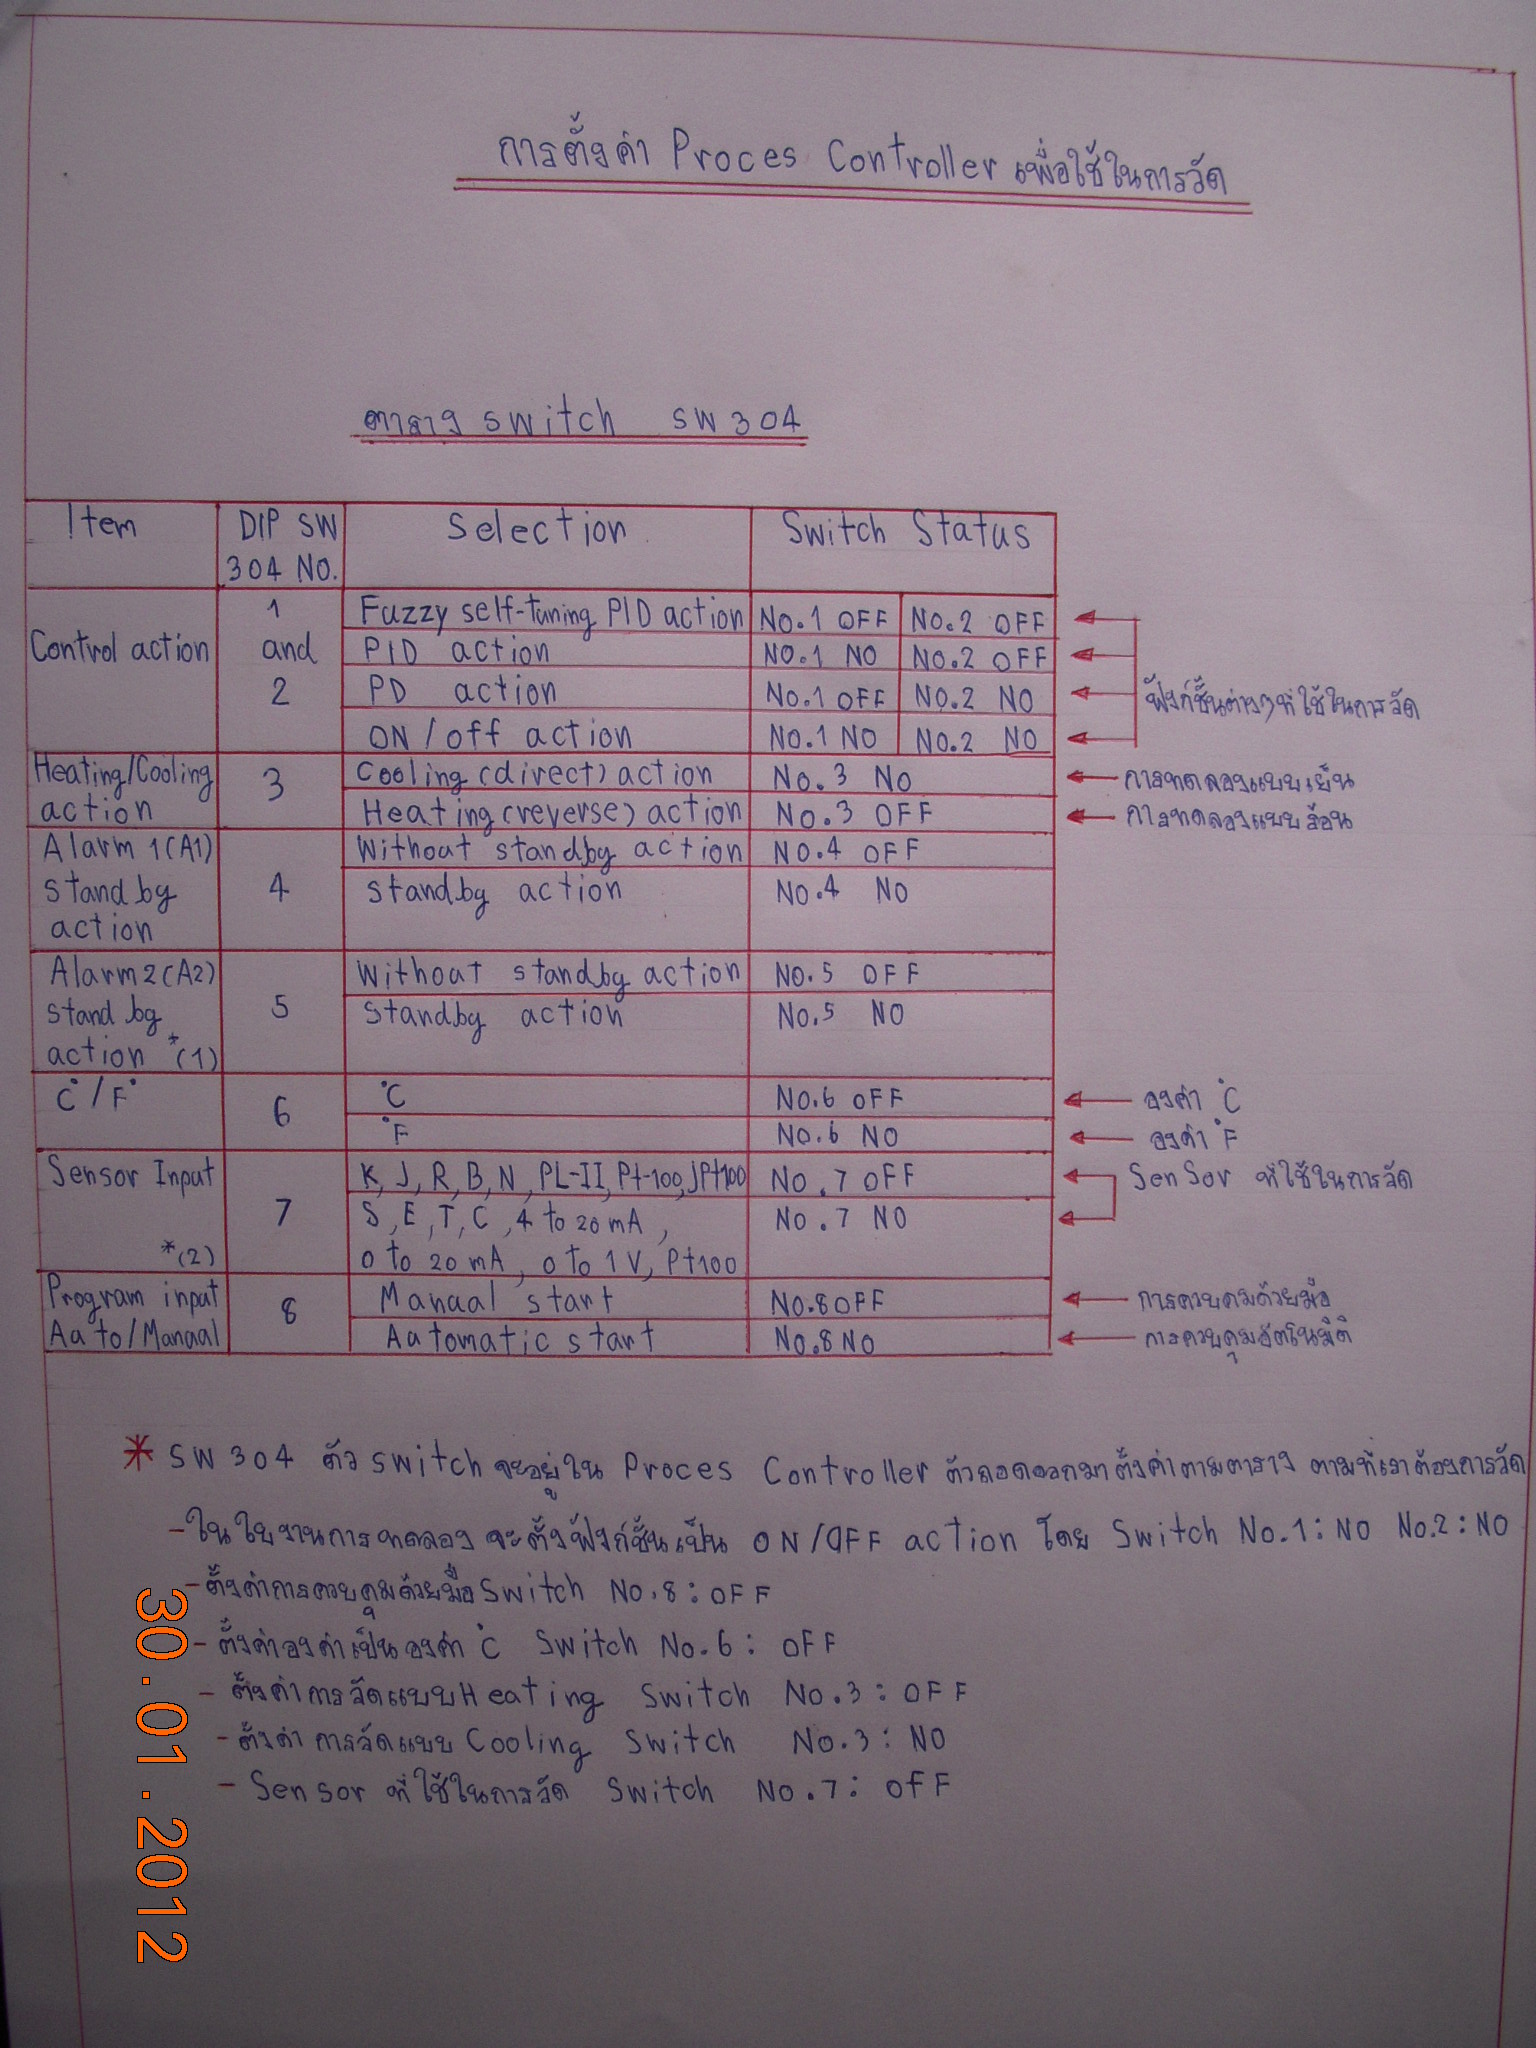 การตั้งค่า Proces Controller เพื่อใช้ในการวัด
ตาราง switch SW 304
Item DIP SW 304 NO. Selection Switch Status
Control action 1 and 2
Fuzzy self-tuning PID action No.1 OFF No.2 OFF
PID action NO.1 NO NO.2 OFF
PD action No.1 OFF NO.2 NO
ON / off action No.1 NO No.2 NO
ฟังก์ชั้นต่างๆที่ใช้ในการวัด
Heating/Cooling action 3
Cooling (direct) action No.3 NO การทดลองแบบเย็น
Heating (reverse) action No.3 OFF การทดลองแบบร้อน
Alarm 1(A1) standby action 4
Without standby action NO.4 OFF
standby action NO.4 NO
Alarm2(A2) standby action *(1) 5
Without standby action NO.5 OFF
standby action NO.5 NO
C° / F° 6
°C NO.6 OFF องค์า °C
°F NO.6 NO องค์า °F
Sensor Input *(2) 7
K, J, R, B, N, PL-II, Pt-100, JPt100 No.7 OFF Sensor ที่ใช้ในการวัด
S, E, T, C, 4 to 20 mA, No.7 NO
0 to 20 mA, 0 to 1 V, Pt100
Program input Aato/Manaal 8
Manaal start NO.8 OFF การควบคุมด้วยมือ
Aatomatic start NO.8 NO การควบคุมอัตโนมัติ
* SW 304 ตัว switch จะอยู่ใน Proces Controller ตัวถอดออกมา ตั้งค่าตามตาราง ตามที่เราต้องการวัด
- ในใบงานการทดลอง จะตั้งฟังก์ชั้นเป็น ON/OFF action โดย Switch No.1: NO No.2: NO
- ตั้งค่าการควบคุมด้วยมือ Switch No.8: OFF
- ตั้งค่าองค์าเป็น องค์า °C Switch No.6: OFF
- ตั้งค่าการวัดแบบ Heating Switch No.3: OFF
- ตั้งค่า การวัดแบบ Cooling Switch No.3: NO
- Sensor ที่ใช้ในการวัด Switch No.7: OFF
30.01.2012